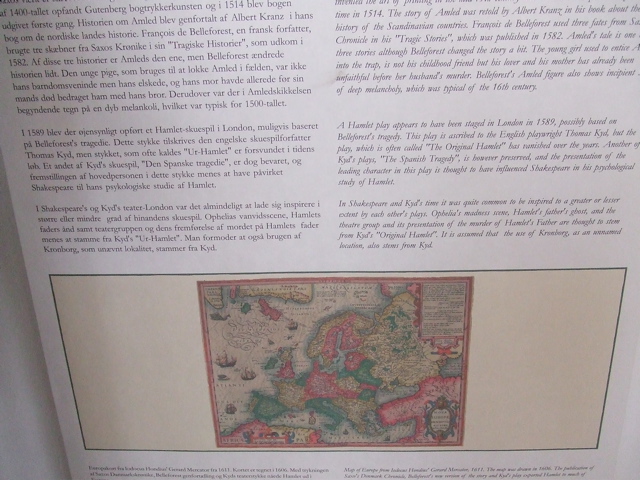 af 1400-tallet opfandt Gutenberg bogtrykkerkunsten og i 1514 blev bogen
udgivet første gang. Historien om Amled blev genfortalt af Albert Kranz i hans
bog om de nordiske landes historie. François de Belleforest, en fransk forfatter,
brugte tre skæbner fra Saxos Kronike i sin "Tragiske Historier", som udkom i
1582. Af disse tre historier er Amleds den ene, men Belleforest ændrede
historien lidt. Den unge pige, som bruges til at lokke Amled i fælden, var ikke
hans barndomsveninde men hans elskede, og hans mor havde allerede før sin
mands død bedraget ham med hans bror. Derudover var der i Amledskikkelsen
begyndende tegn på en dyb melankoli, hvilket var typisk for 1500-tallet.
I 1589 blev der øjensynligt opført et Hamlet-skuespil i London, muligvis baseret
på Belleforest's tragedie. Dette stykke tilskrives den engelske skuespilforfatter
Thomas Kyd, men stykket, som ofte kaldes "Ur-Hamlet" er forsvundet i tidens
løb. Et andet af Kyd's skuespil, "Den Spanske tragedie", er dog bevaret, og
fremstillingen af hovedpersonen i dette stykke menes at have påvirket
Shakespeare til hans psykologiske studie af Hamlet.
I Shakespeare's og Kyd's teater-London var det almindeligt at lade sig inspirere i
større eller mindre grad af hinandens skuespil. Ophelias vanvidsscene, Hamlets
faders ånd samt teatergruppen og dens fremførelse af mordet på Hamlets fader
menes at stamme fra Kyd's "Ur-Hamlet". Man formoder at også brugen af
Kronborg, som unævnt lokalitet, stammer fra Kyd.
time in 1514. The story of Amled was retold by Albert Kranz in his book about the
history of the Scandinavian countries. François de Belleforest used three fates from Saxo
Chronicle in his "Tragic Stories", which was published in 1582. Amled's tale is one
three stories although Belleforest changed the story a bit. The young girl used to entice A
into the trap, is not his childhood friend but his lover and his mother has already been
unfaithful before her husband's murder. Belleforest's Amled figure also shows incipient
of deep melancholy, which was typical of the 16th century.
A Hamlet play appears to have been staged in London in 1589, possibly based on
Belleforest's tragedy. This play is ascribed to the English playwright Thomas Kyd, but the
play, which is often called "The Original Hamlet" has vanished over the years. Another of
Kyd's plays, "The Spanish Tragedy", is however preserved, and the presentation of the
leading character in this play is thought to have influenced Shakespeare in his psychological
study of Hamlet.
In Shakespeare and Kyd's time it was quite common to be inspired to a greater or lesser
extent by each other's plays. Ophelia's madness scene, Hamlet's father's ghost, and the
theatre group and its presentation of the murder of Hamlet's Father are thought to stem
from Kyd's "Original Hamlet". It is assumed that the use of Kronborg, as an unnamed
location, also stems from Kyd.